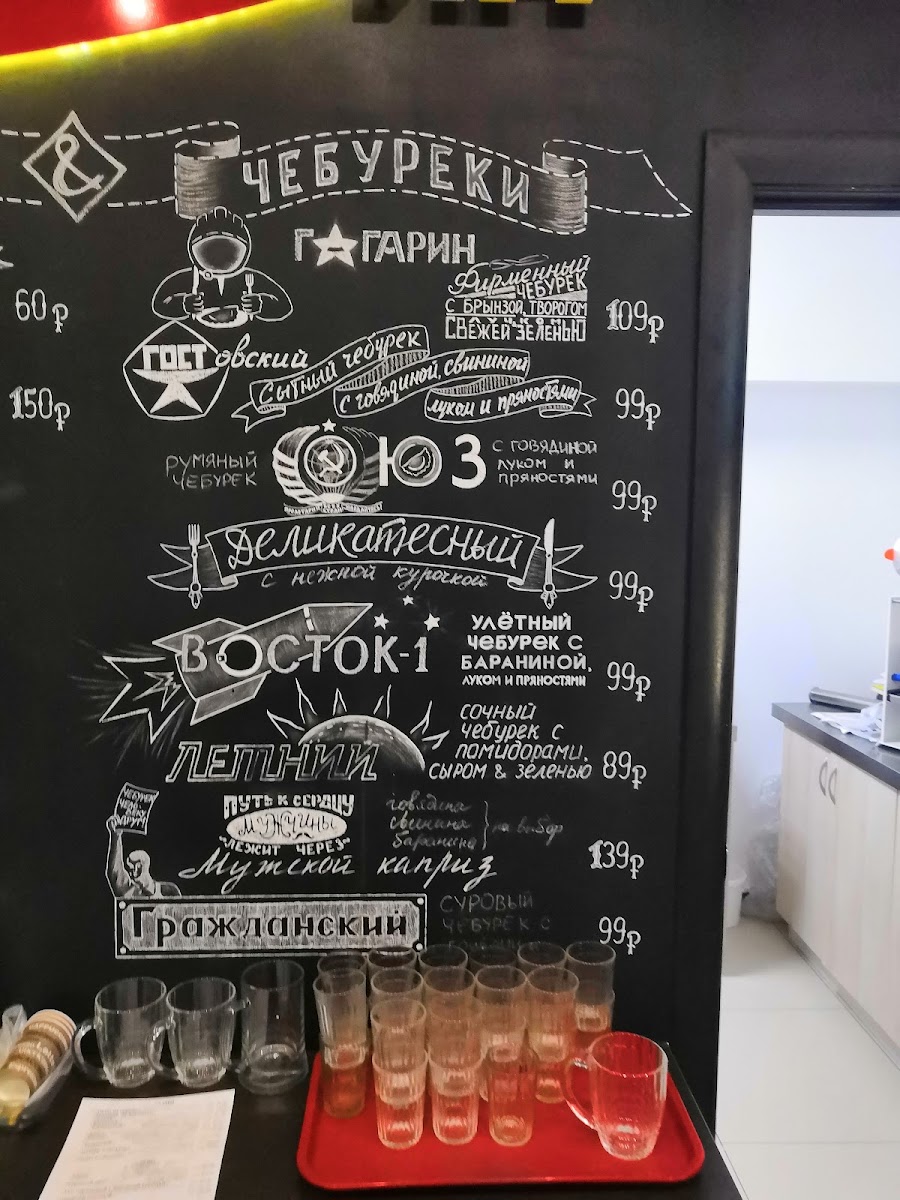 &
ЧЕБУРЕКИ
ГАГАРИН
Фирменный
ЧЕБУРЕК
С БРЫНЗОЙ, ТВОРОГОМ
СВЕЖЕЙ ЗЕЛЕНЬЮ
109₽
60₽
ГОСТовский
Сытный чебурек
с говядиной, свининой
луком и пряностями
99₽
150₽
РУМЯНЫЙ
ЧЕБУРЕК
СОЮЗ
С ГОВЯДИНОЙ
ЛУКОМ И
ПРЯНОСТЯМИ
99₽
Деликатесный
с нежной курочкой
99₽
ВОСТОК-1
УЛЁТНЫЙ
ЧЕБУРЕК С
БАРАНИНОЙ,
ЛУКОМ И ПРЯНОСТЯМИ
99₽
ЛЕТНИЙ
СОЧНЫЙ
ЧЕБУРЕК С
ПОМИДОРАМИ,
СЫРОМ & ЗЕЛЕНЬЮ
89₽
ПУТЬ К СЕРДЦУ
МУЖЧИНЫ
"ЛЕЖИТ ЧЕРЕЗ"
Мужской каприз
говядина
свинина
баранина
на выбор
139₽
Гражданский
СУРОВЫЙ
ЧЕБУРЕК С
99₽